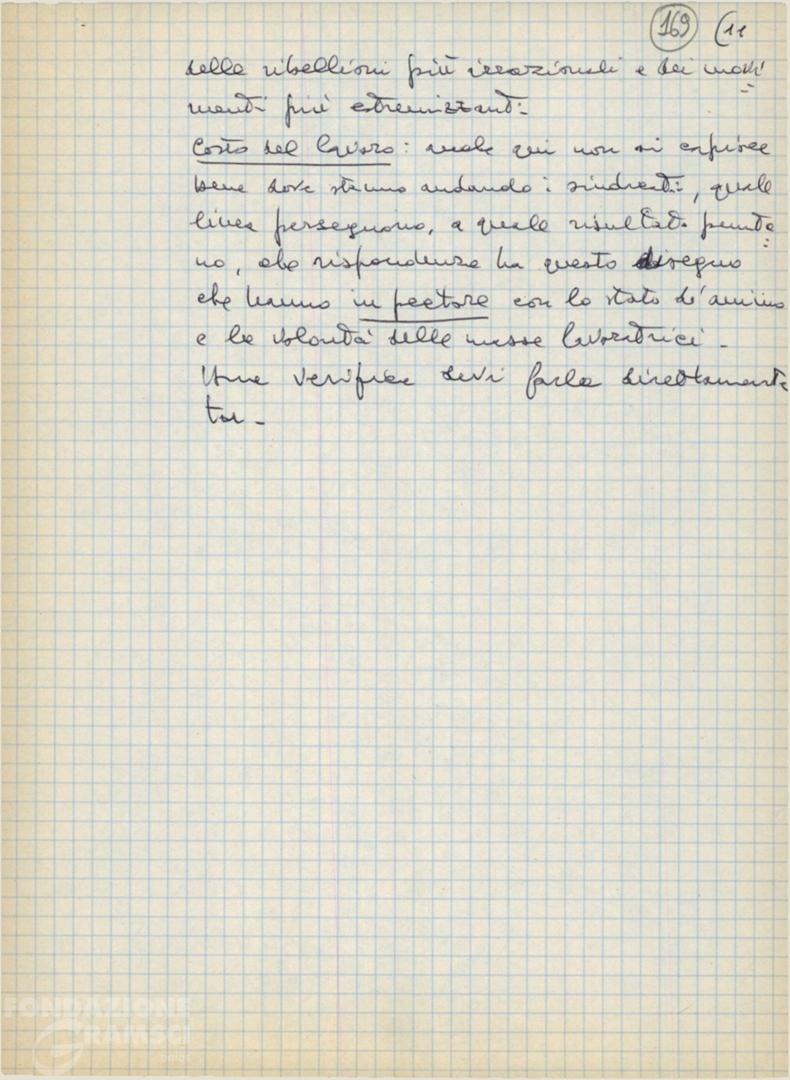 169 (11
delle ribellioni più irrazionali e dei movi=
menti più estremizzanti.
Costo del lavoro: anche qui non si capisce
bene dove stanno andando i sindacati, quale
linea perseguono, a quale risultato punta=
no, che rispondenza ha questo disegno
che hanno in pectore con lo stato d'animo
e la volontà delle masse lavoratrici -
Una verifica devi farla direttamente
tu -
FONDAZIONE
GRAMSCI